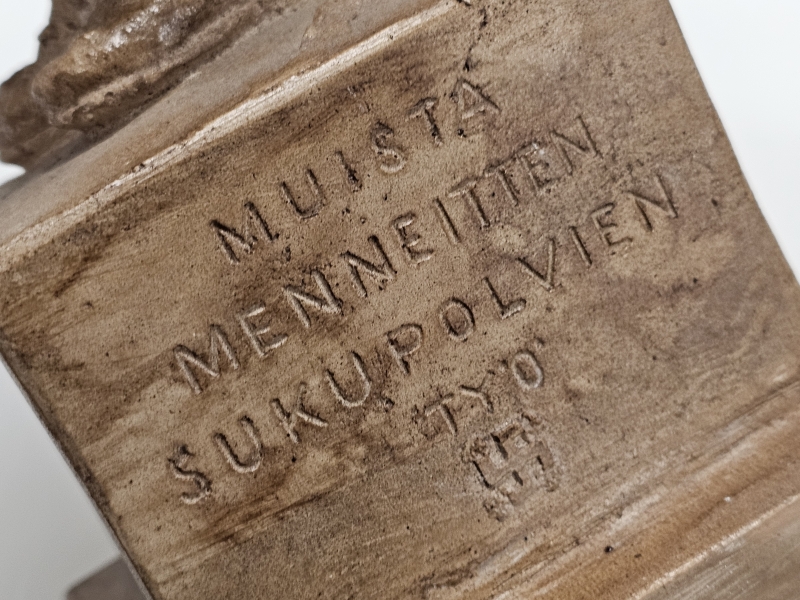 MUISTA
MENNEITTEN
SUKUPOLVIEN
TYÖ